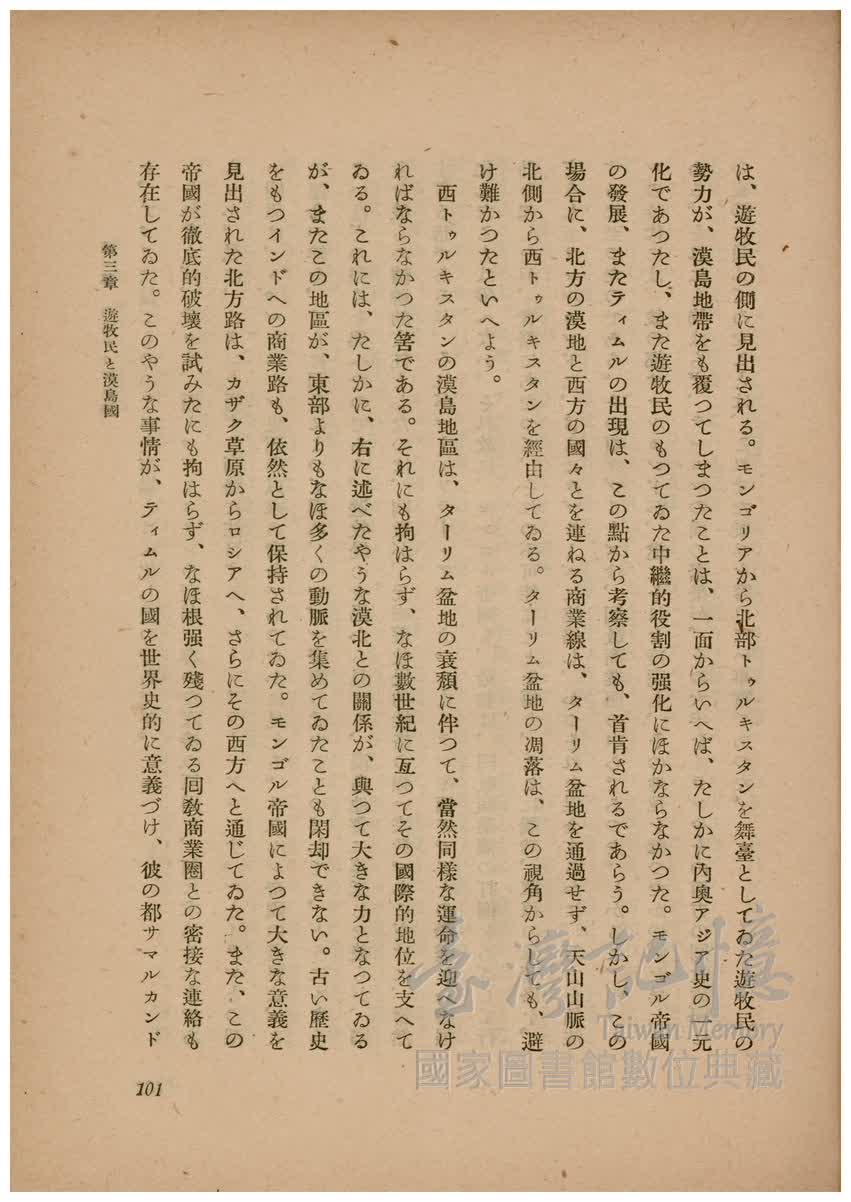 は、遊牧民の側に見出される。モンゴリアから北部トゥルキスタンを舞臺としてゐた遊牧民の
勢力が、漠島地帶をも覆つてしまつたことは、一面からいへば、たしかに內奧アジア史の一元
化であつたし、また遊牧民のもつてゐた中繼的役割の强化にほかならなかつた。モンゴル帝國
の發展、またティムルの出現は、この點から考察しても、首肯されるであらう。しかし、この
場合に、北方の漠地と西方の國々とを連ねる商業線は、タリム盆地を通過せず、天山山脈の
北側から西トゥルキスタンを經由してゐる。ターリム盆地の凋落は、この視角からしても、避
け難かつたといへよう。
西トゥルキスタンの漠島地區は、ターリム盆地の衰頽に伴つて、當然同樣な運命を迎へなけ
ればならなかつた筈である。それにも拘はらず、なほ數世紀に亙つてその國際的地位を支へて
ゐる。これには、たしかに、右に述べたやうな漠北との關係が、與つて大きな力となつてゐる
が、またこの地區が、東部よりもなほ多くの動脈を集めてゐたことも閑却できない。古い歷史
をもつインドへの商業路も、依然として保持されてゐた。モンゴル帝國によつて大きな意義を
見出された北方路は、カザク草原からロシアへ、さらにその西方へと通じてゐた。また、この
帝國が徹底的破壞を試みたにも拘はらず、なほ根强く殘つてゐる囘敎商業圈との密接な連絡も
存在してゐた。このやうな事情が、ティムルの國を世界史的に意義づけ、彼の都サマルカンド
第三章 遊牧民と漠島國
101
臺灣記憶
Taiwan Memory
國家圖書館數位典藏